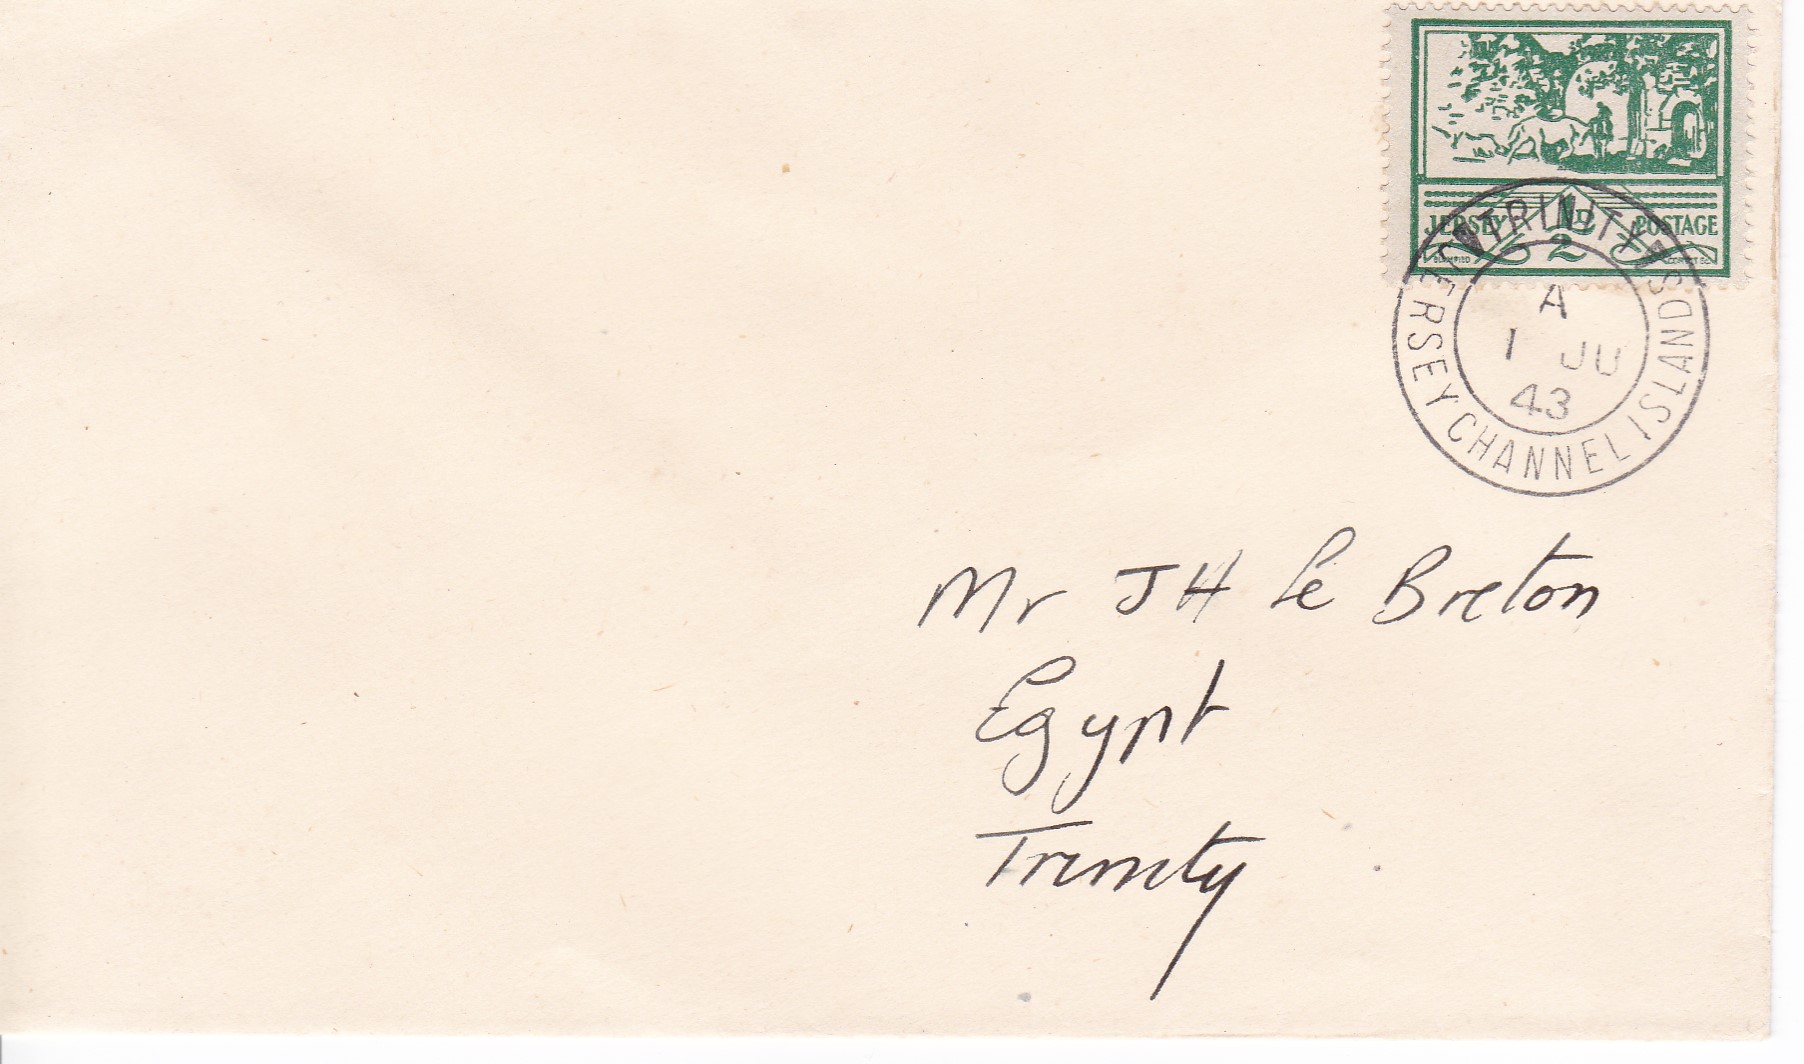 JERSEY ½D POSTAGE
BLAMPIED
TRINITY
JERSEY CHANNEL ISLANDS
A
1 JU
43
Mr J H Le Breton
Egypt
Trinity